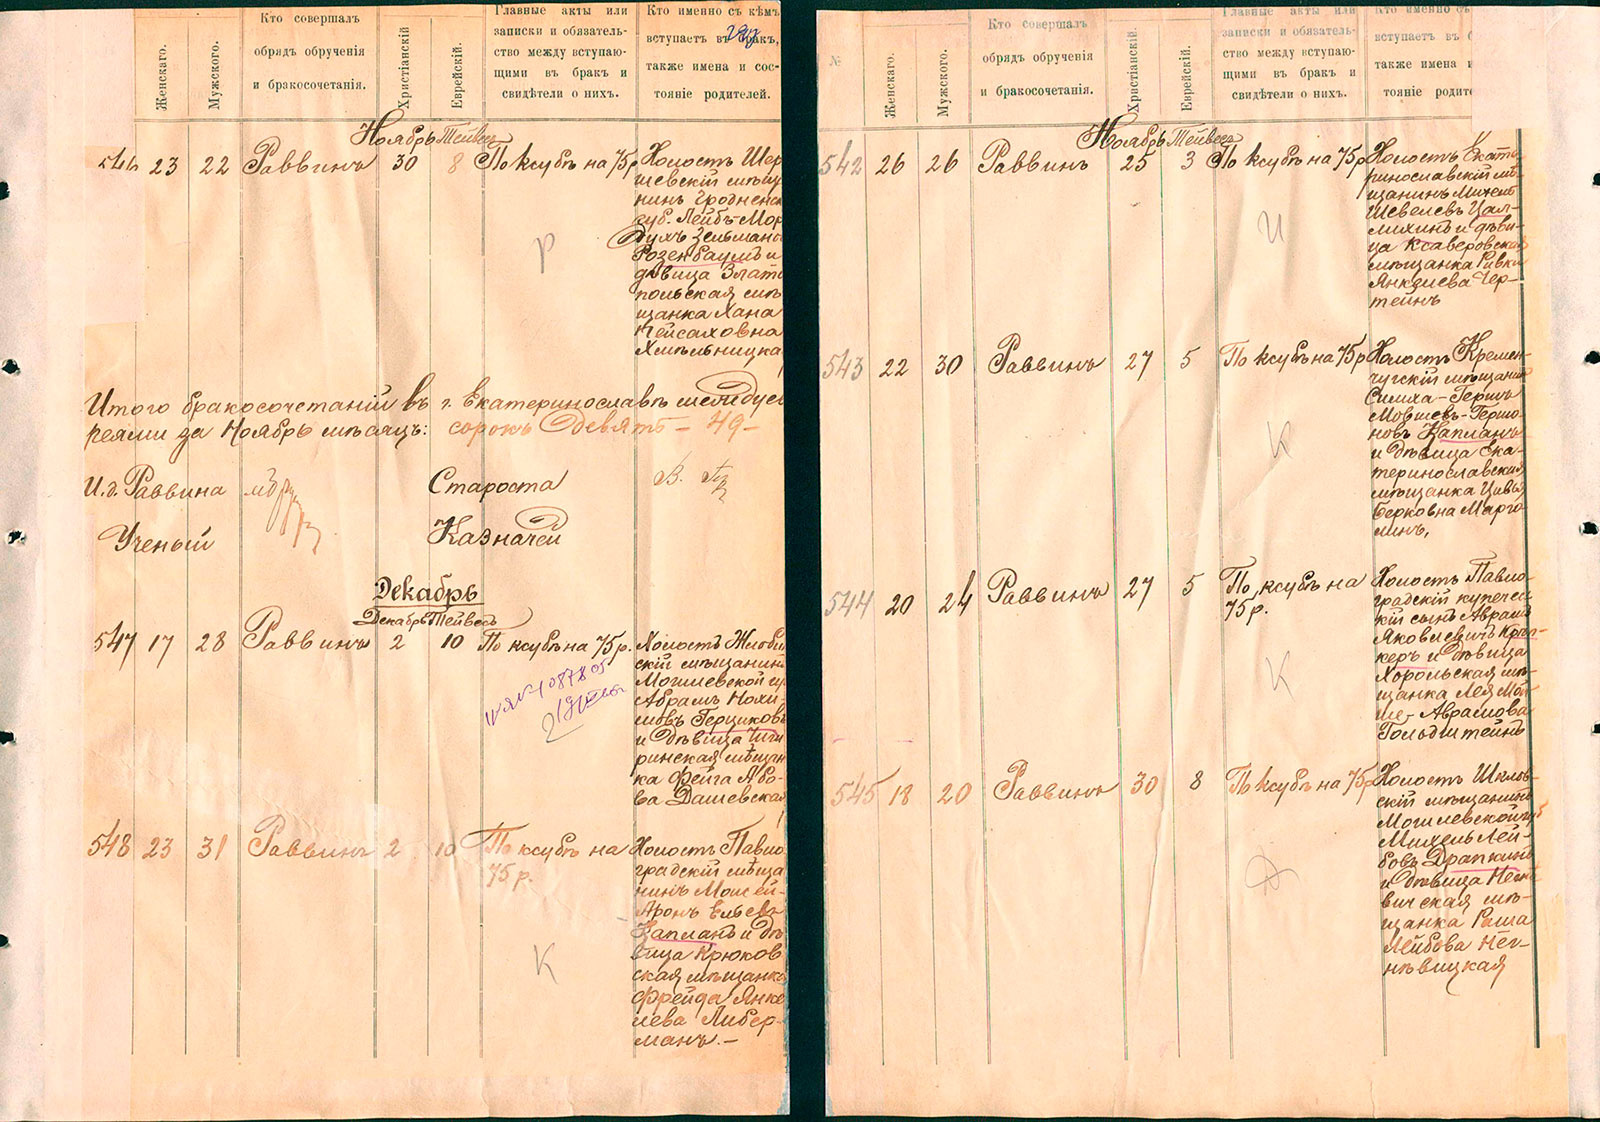 Женскаго.
Мужского.
Кто совершалъ
обрядъ обрученія
и бракосочетанія.
Христіанскій
Еврейскій.
Главные акты или
записки и обязатель-
ство между вступаю-
щими въ бракъ и
свидѣтели о нихъ.
Кто именно съ кѣмъ
вступаетъ въ бракъ,
также имена и сос-
тояніе родителей.
Ноябрь Тейвесъ
546 23 22 Раввинъ 30 8 По ксубѣ на 75 р.
Холостъ Шер
шевскій мѣщ
нинъ Гродненск
губ. Лейбъ-Мор
духъ Зельманов
Розенбаумъ и
дѣвица Злато
польская мѣ
щанка Хана
Пейсаховна
Хмѣльницка
Итого бракосочетаній въ г. Екатеринославѣ между ев
реями за Ноябрь мѣсяцъ: сорокъ девять - 49 -
И. д. Раввина
Староста
В.
Ученый
Казначей
Декабрь
Декабрь Тейвесъ
547 17 28 Раввинъ 2 10 По ксубѣ на 75 р.
Холостъ Жлобин
скій мѣщанинъ
Могилевской гу
Абрамъ Нохи-
мовъ Герциковъ
и дѣвица Чиги
ринская мѣщан
ка Фейга Або-
ва Дашевская
548 23 31 Раввинъ 2 10 По ксубѣ на
75 р.
Холостъ Павло
градскій мѣща
нинъ Мойсей-
Аронъ Ельевъ
Капланъ и дѣ
вица Крюков
ская мѣщанка
Фрейда Янке
лева Либер-
манъ. -
Р
К
№
Женскаго.
Мужского.
Кто совершалъ
обрядъ обрученія
и бракосочетанія.
Христіанскій.
Еврейскій.
Главные акты или
записки и обязатель-
ство между вступаю-
щими въ бракъ и
свидѣтели о нихъ.
Кто именно съ
вступаетъ въ
также имена и
тояніе родите
Ноябрь Тейвесъ
542 26 26 Раввинъ 25 3 По ксубѣ на 75 р
Холостъ Екате
ринославскій мѣ
щанинъ Михель
Шевелевъ Цал-
михинъ и дѣви
ца Ксаверовская
мѣщанка Ривка
Янкелева Чер-
тейнъ
Ц
543 22 30 Раввинъ 27 5 По ксубѣ на 75 р
Холостъ Кремен-
чугскій мѣщанин
Симха-Гершъ
Мовшевъ-Гершо
новъ Капланъ
и дѣвица Ека-
теринославская
мѣщанка Цивья
Берковна Марго
линъ,
К
544 20 24 Раввинъ 27 5 По ксубѣ на
75 р.
Холостъ Павло-
градскій купечес
кій сынъ Абрамъ
Яковлевичъ Кри-
керъ и дѣвица
Хорольская мѣ-
щанка Лея Мой
ше-Абрамова
Гольдштейнъ
К
545 18 20 Раввинъ 30 8 По ксубѣ на 75 р
Холостъ Шклов-
скій мѣщанинъ
Могилевской губ
Михель Лей-
бовъ Драпкинъ
и дѣвица Нег-
вичская мѣ-
щанка Раша
Лейбова Нег-
нѣвицкая
Д